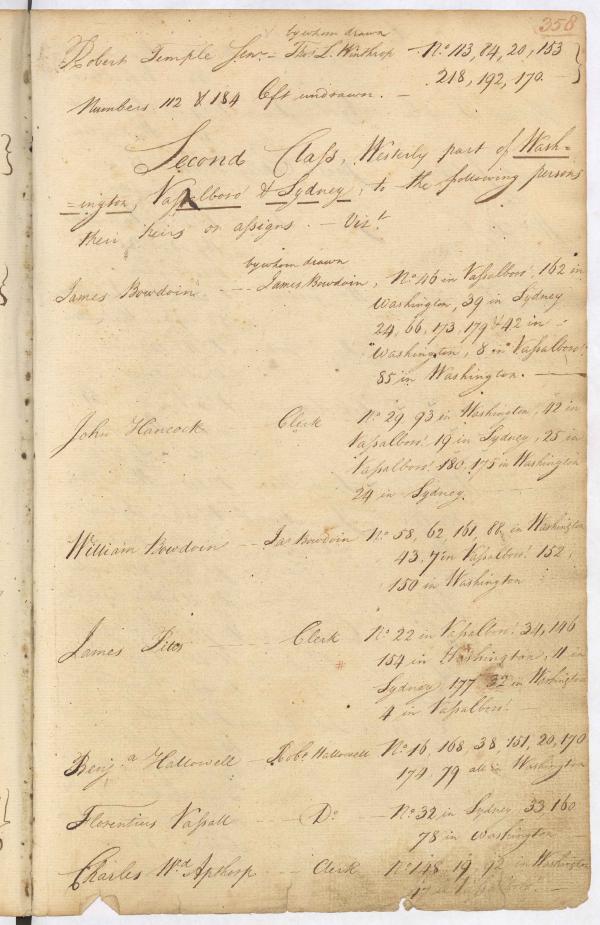 358
by whom drawn
Robert Temple Senr. - Thos L. Winthrop - No. 113, 84, 20, 153
218, 192, 170. -
Numbers 112 & 184 left undrawn. -
Second Class, Westerly part of Wash=
=ington, Vassalboro & Sydney, to the following persons
their heirs or assigns. - Vizt.
by whom drawn
James Bowdoin - - James Bowdoin, No. 46 in Vassalboro', 162 in
Washington, 39 in Sydney
24, 66, 173, 179 & 42 in
Washington, 8 in Vassalboro'
85 in Washington. -
John Hancock Clerk No. 29, 93 in Washington, 42 in
Vassalboro' 19 in Sydney, 25 in
Vassalboro' 180, 175 in Washington
24 in Sydney.
William Bowdoin - Jas Bowdoin No. 58, 62, 161, 88, in Washington
43, 7 in Vassalboro' 152,
150 in Washington
James Pitts - - Clerk No. 22 in Vassalboro' 34, 146
154 in Washington, 11 in
Sydney 177 32 in Washington
4 in Vassalboro' -
Benja. Hallowell - Robt. Hallowell No. 16, 168, 38, 151, 20, 170
174, 79 all in Washington
Florentius Vassall - - Do. - No. 32 in Sydney 33 160
78 in Washington -
Charles Wd Apthorp - - Clerk No. 148 19, 92 in Washington
17 in Vassalboro' -